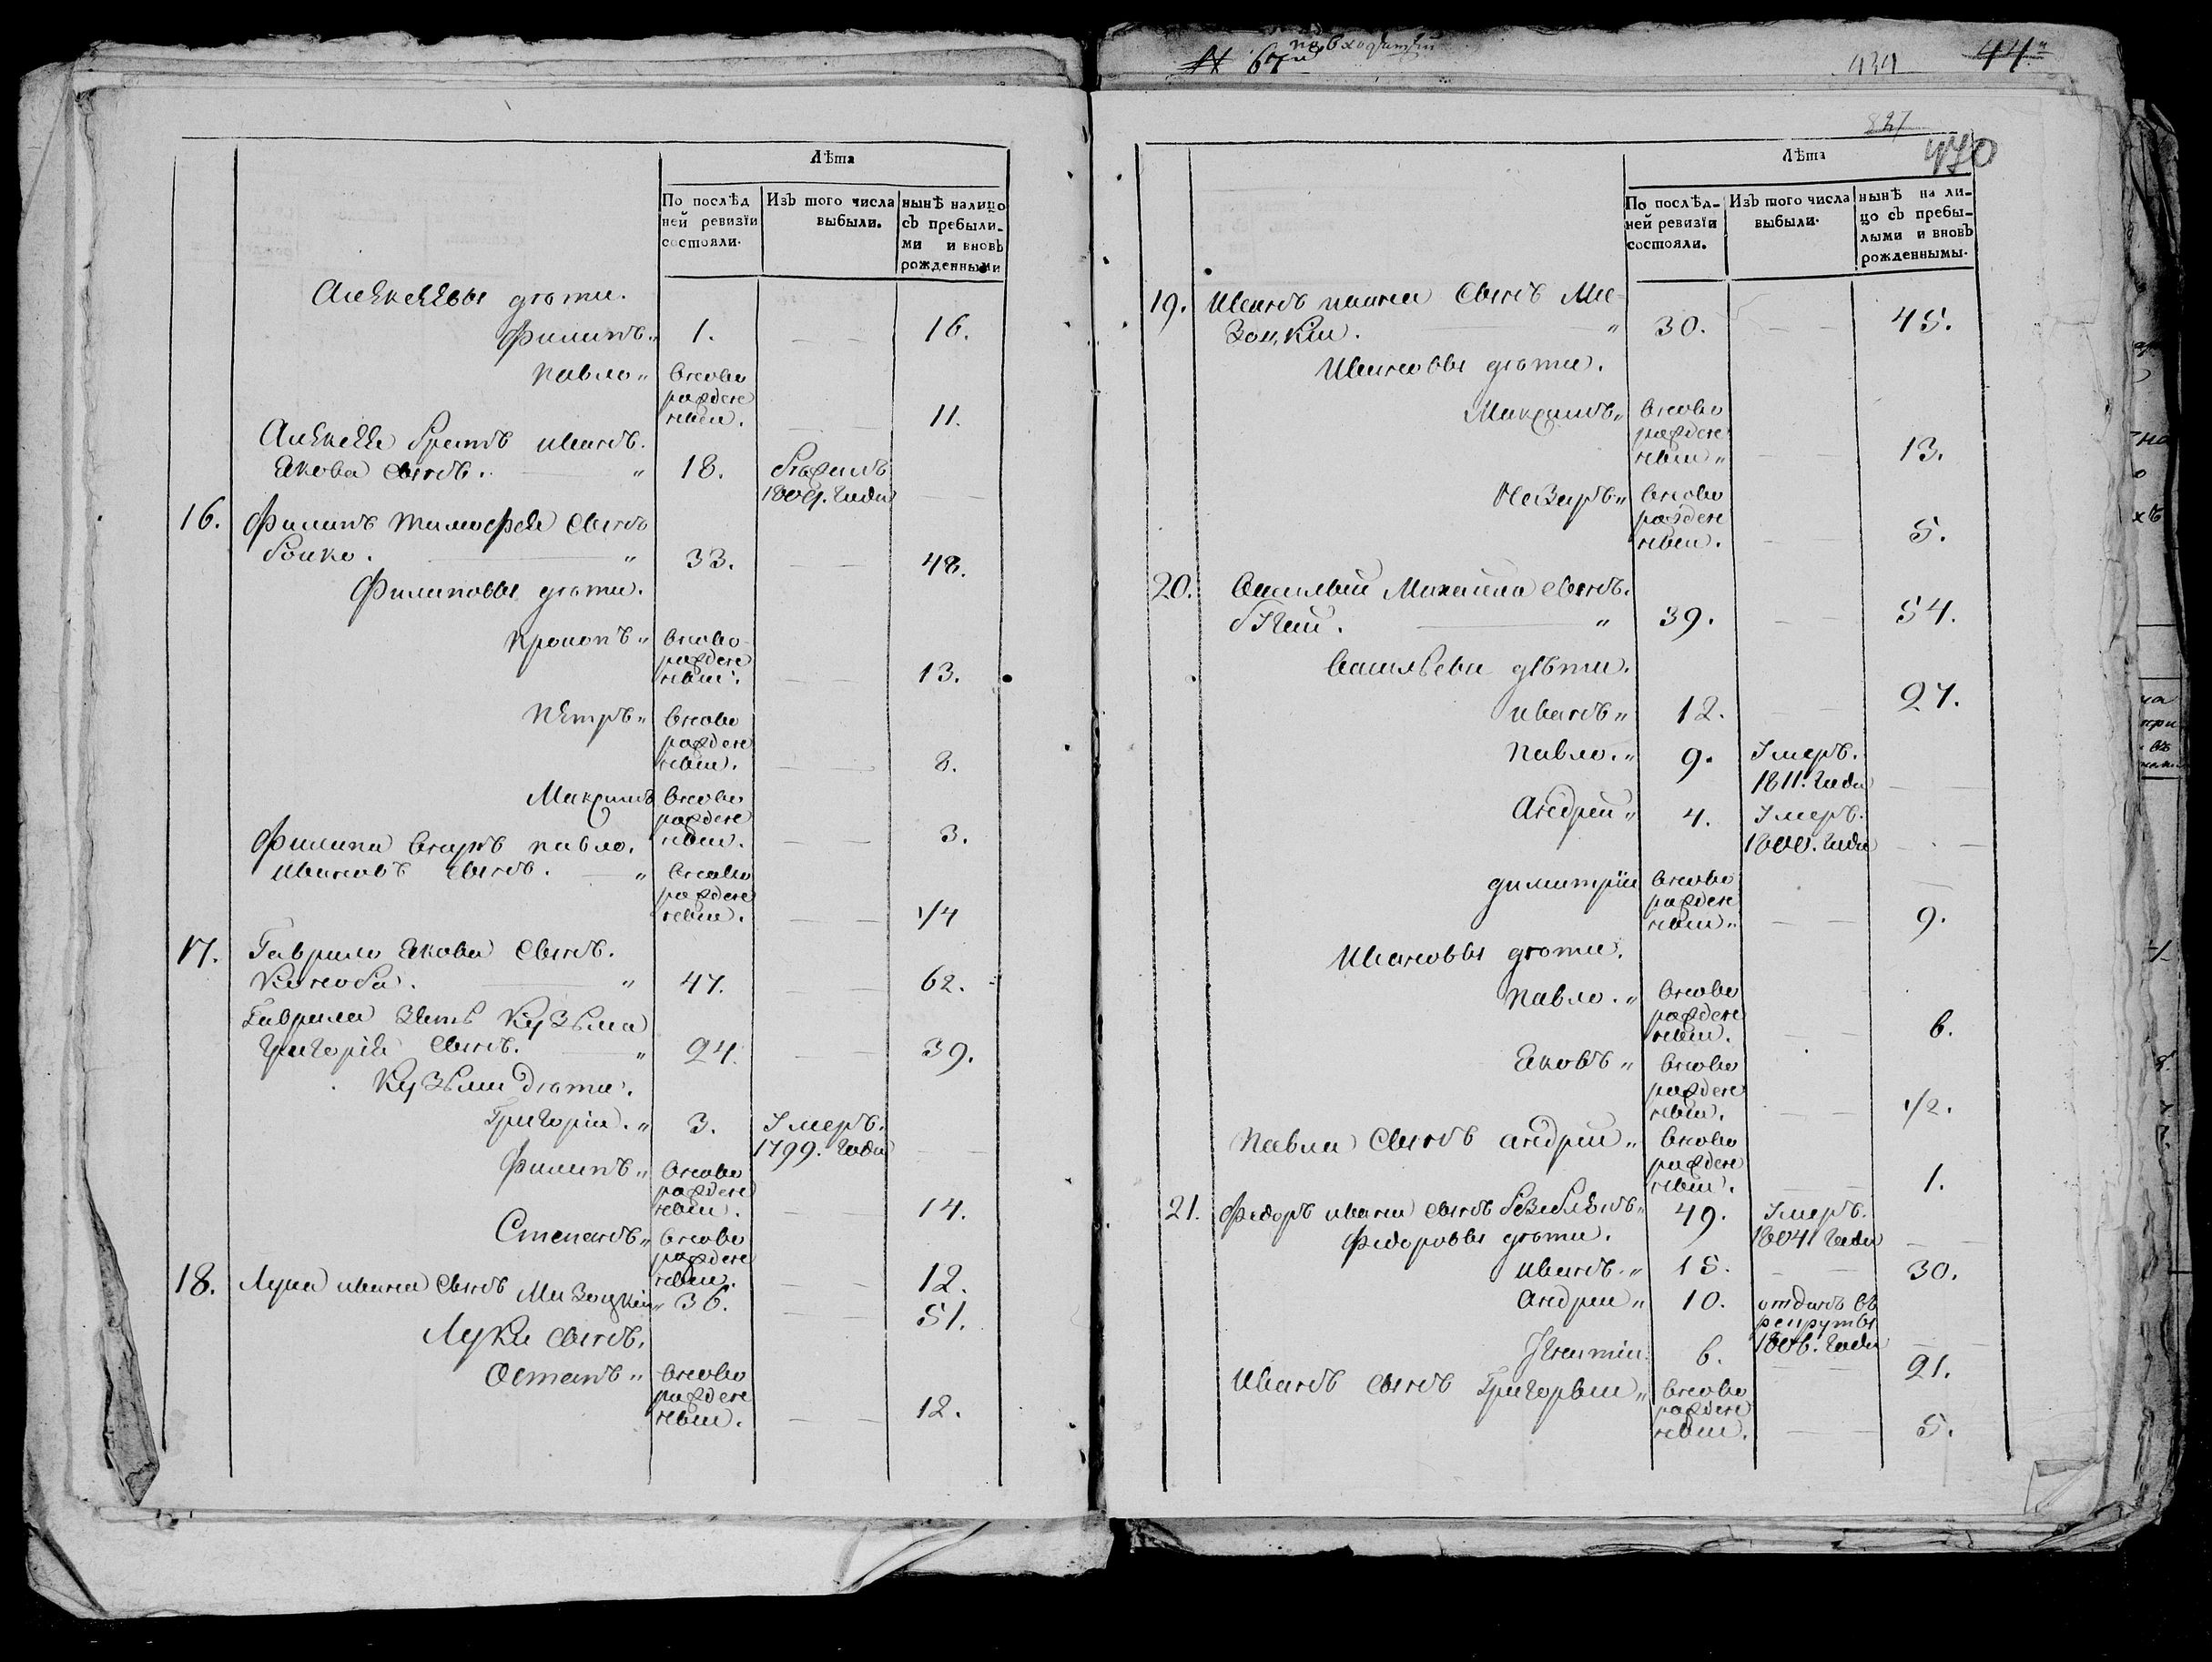 № 67й по входящий
434
44й
Лѣта
По послѣд
ней ревизїи
состояли.
Изъ того числа
выбыли.
нынѣ налицо
съ пребылы-
ми и вновь
рожденными
Алексеевы дѣти.
Филипъ „ 1. — — 16.
Павло „ вново
рожден
ный. — — 11.
Алексея братъ иванъ.
Якова сынъ. „ 18. бѣжалъ
1809. Года — —
16. Филипъ тимофея сынъ
Бойко. „ 33. — — 48.
Филиповы дѣти.
Прокопъ „ вново
рожден
ный. — — 13.
Петръ „ вново
рожден
ный. — — 8.
Максимъ вново
рожден
ный. — — 3.
Филипа внукъ павло.
ивановъ сынъ. — „ вново
рожден
ный. — — 1/4
17. Гаврило Якова сынъ.
„ 47. — — 62.
Гаврила зять Кузьма
Григорія сынъ. „ 24. — — 39.
Кузьмы дѣти.
Григорій. „ 3. Умеръ.
1799. Года — —
Филипъ „ вново
рожден
ный. — — 14.
Степанъ „ вново
рожден
ный. — — 12.
18. Лука ивана сынъ Мизоцкій „ 36. — — 51.
Луки сынъ.
Остапъ „ вново
рожден
ный. — — 12.
827
470
Лѣта
По послѣд-
ней ревизїи
состояли.
Изъ того числа
выбыли.
нынѣ на ли-
цо съ пребы-
лыми и вновь
рожденнымы.
19. Иванъ ивана сынъ Ми-
зоцкій. „ 30. — — 45.
Ивановы дѣти.
Максимъ „ вново
рожден
ный „ — — 13.
Назаръ „ вново
рожден
ный. — — 5.
20. Василый Михайла сынъ.
„ 39. — — 54.
Васильеви дѣти.
иванъ „ 12. — — 27.
Павло. „ 9. Умеръ.
1811. Года — —
Андрей „ 4. Умеръ.
1800. Года — —
димитрій вново
рожден
ный „ — — 9.
Ивановы дѣти.
Павло. „ вново
рожден
ный. — — 6.
Яковъ „ вново
рожден
ный. — — 1/2.
Павла сынъ андрій „ вново
рожден
ный. — — 1.
21. Федоръ ивана сынъ „ 49. Умеръ.
Федоровы дѣти. 1804. Года — —
иванъ. „ 15. — — 30.
андрій „ 10. отданъ въ
рекруты
1806. Года — —
6. — — 21.
Иванъ сынъ Григорый „ вново
рожден
ный. — — 5.